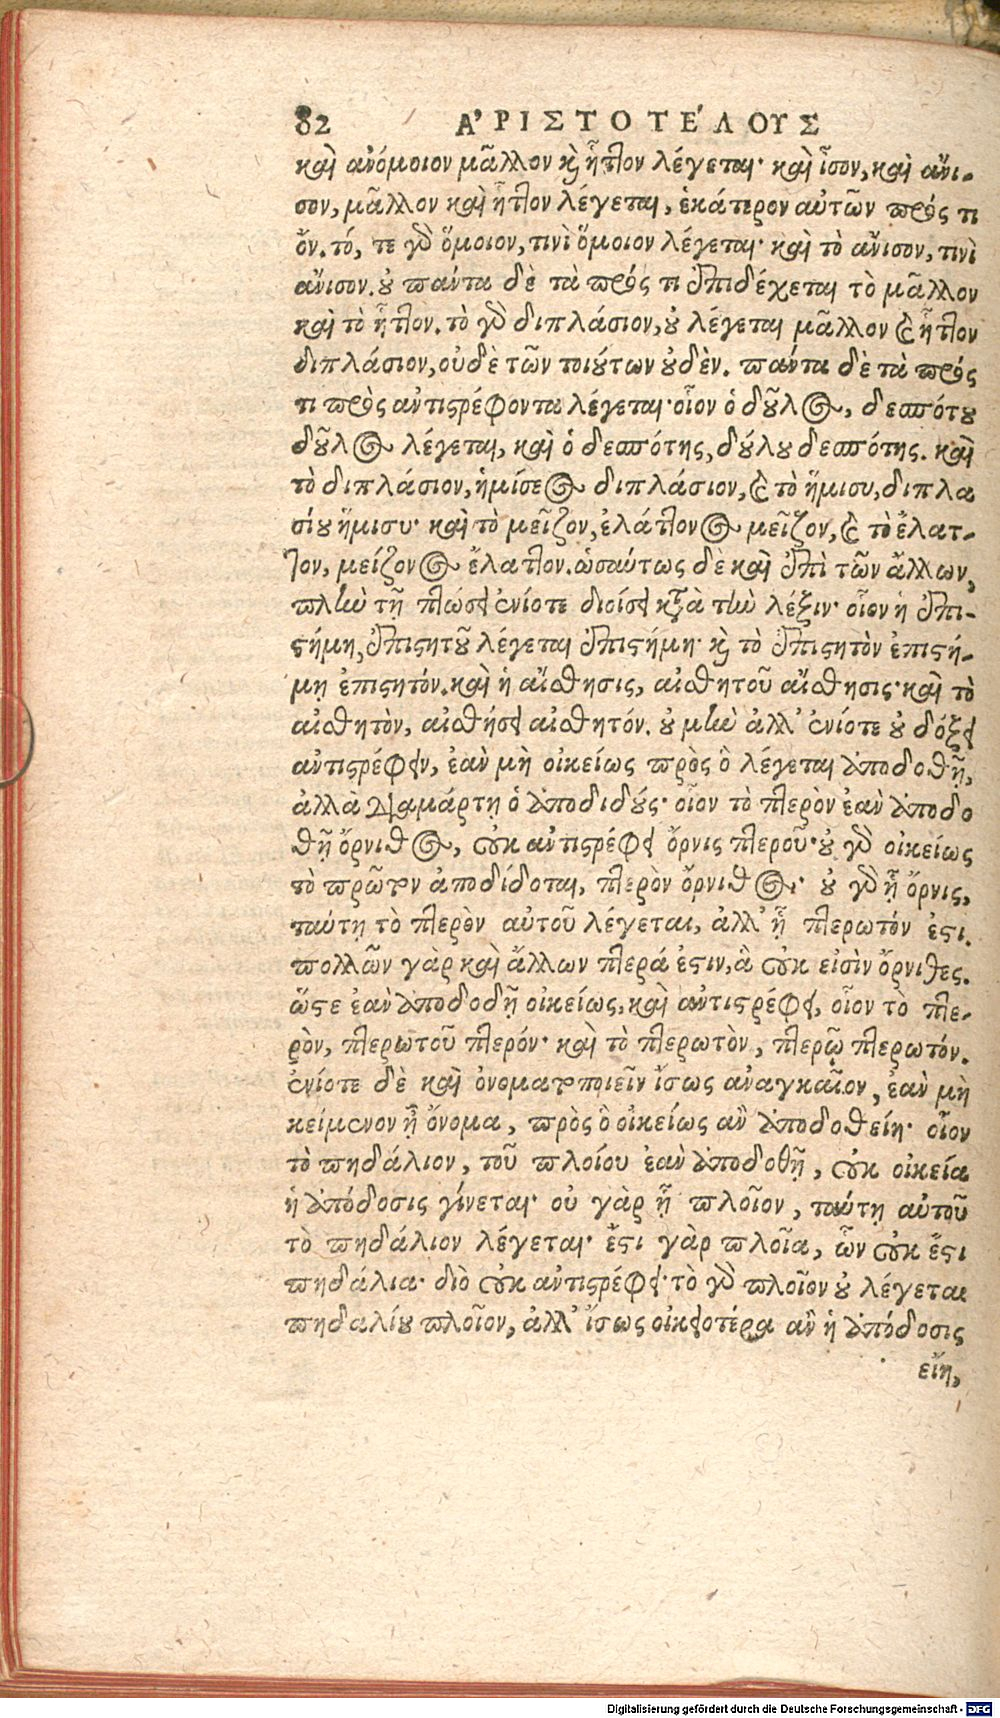 82 ἈΡΙΣΤΟΤΈΛΟΥΣ
καὶ ἀνόμοιον μᾶλλον καὶ ἧττον λέγεται· καὶ ἶσον, καὶ ἄνι-
σον, μᾶλλον καὶ ἧττον λέγεται, ἑκάτερον αὐτῶν πρός τι
ὄν. τό, τε γὰρ ὅμοιον, τινὶ ὅμοιον λέγεται· καὶ τὸ ἄνισον, τινὶ
ἄνισον. οὐ πάντα δὲ τὰ πρός τι ἐπιδέχεται τὸ μᾶλλον
καὶ τὸ ἧττον. τὸ γὰρ διπλάσιον, οὐ λέγεται μᾶλλον καὶ ἧττον
διπλάσιον, οὐδὲ τῶν τοιούτων οὐδὲν. πάντα δὲ τὰ πρός
τι πρὸς ἀντιστρέφοντα λέγεται· οἷον ὁ δοῦλος, δεσπότου
δοῦλος λέγεται, καὶ ὁ δεσπότης, δούλου δεσπότης. καὶ
τὸ διπλάσιον, ἡμίσεος διπλάσιον, καὶ τὸ ἥμισυ, διπλα
σίου ἥμισυ· καὶ τὸ μεῖζον, ἐλάττονος μεῖζον, καὶ τὸ ἔλατ-
τον, μείζονος ἔλαττον. ὡσαύτως δὲ καὶ ἐπὶ τῶν ἄλλων,
πλὴν τῇ πτώσει ἐνίοτε διοίσει κατὰ τὴν λέξιν· οἷον ἡ ἐπι-
στήμη, ἐπιστητοῦ λέγεται ἐπιστήμη· καὶ τὸ ἐπιστητὸν ἐπιστή-
μῃ ἐπιστητόν. καὶ ἡ αἴσθησις, αἰσθητοῦ αἴσθησις· καὶ τὸ
αἰσθητὸν, αἰσθήσει αἰσθητόν. οὐ μὴν ἀλλ’ ἐνίοτε οὐ δόξει
ἀντιστρέφειν, ἐὰν μὴ οἰκείως πρὸς ὃ λέγεται ἀποδοθῇ,
ἀλλὰ διαμάρτῃ ὁ ἀποδιδούς· οἷον τὸ πτερὸν ἐὰν ἀποδο
θῇ ὄρνιθος, οὐκ ἀντιστρέφει ὄρνις πτεροῦ· οὐ γὰρ οἰκείως
τὸ πρῶτον ἀποδίδοται, πτερὸν ὄρνιθος· οὐ γὰρ ᾗ ὄρνις,
ταύτῃ τὸ πτερὸν αὐτοῦ λέγεται, ἀλλ’ ᾗ πτερωτόν ἐστι.
πολλῶν γὰρ καὶ ἄλλων πτερά ἐστιν, ἃ οὐκ εἰσὶν ὄρνιθες.
ὥστε ἐὰν ἀποδοδῇ οἰκείως, καὶ ἀντιστρέφει, οἷον τὸ πτε-
ρὸν, πτερωτοῦ πτερόν· καὶ τὸ πτερωτὸν, πτερῷ πτερωτόν.
ἐνίοτε δὲ καὶ ὀνοματοποιεῖν ἴσως ἀναγκαῖον, ἐὰν μὴ
κείμενον ᾖ ὄνομα, πρὸς ὃ οἰκείως ἂν ἀποδοθείη· οἷον
τὸ πηδάλιον, τοῦ πλοίου ἐὰν ἀποδοθῇ, οὐκ οἰκεία
ἡ ἀπόδοσις γίνεται· οὐ γὰρ ᾗ πλοῖον, ταύτῃ αὐτοῦ
τὸ πηδάλιον λέγεται· ἔστι γὰρ πλοῖα, ὧν οὐκ ἔστι
πηδάλια· διὸ οὐκ ἀντιστρέφει· τὸ γὰρ πλοῖον οὐ λέγεται
πηδαλίου πλοῖον, ἀλλ’ ἴσως οἰκειοτέρα ἂν ἡ ἀπόδοσις
εἴη,
Digitalisierung gefördert durch die Deutsche Forschungsgemeinschaft - DFG